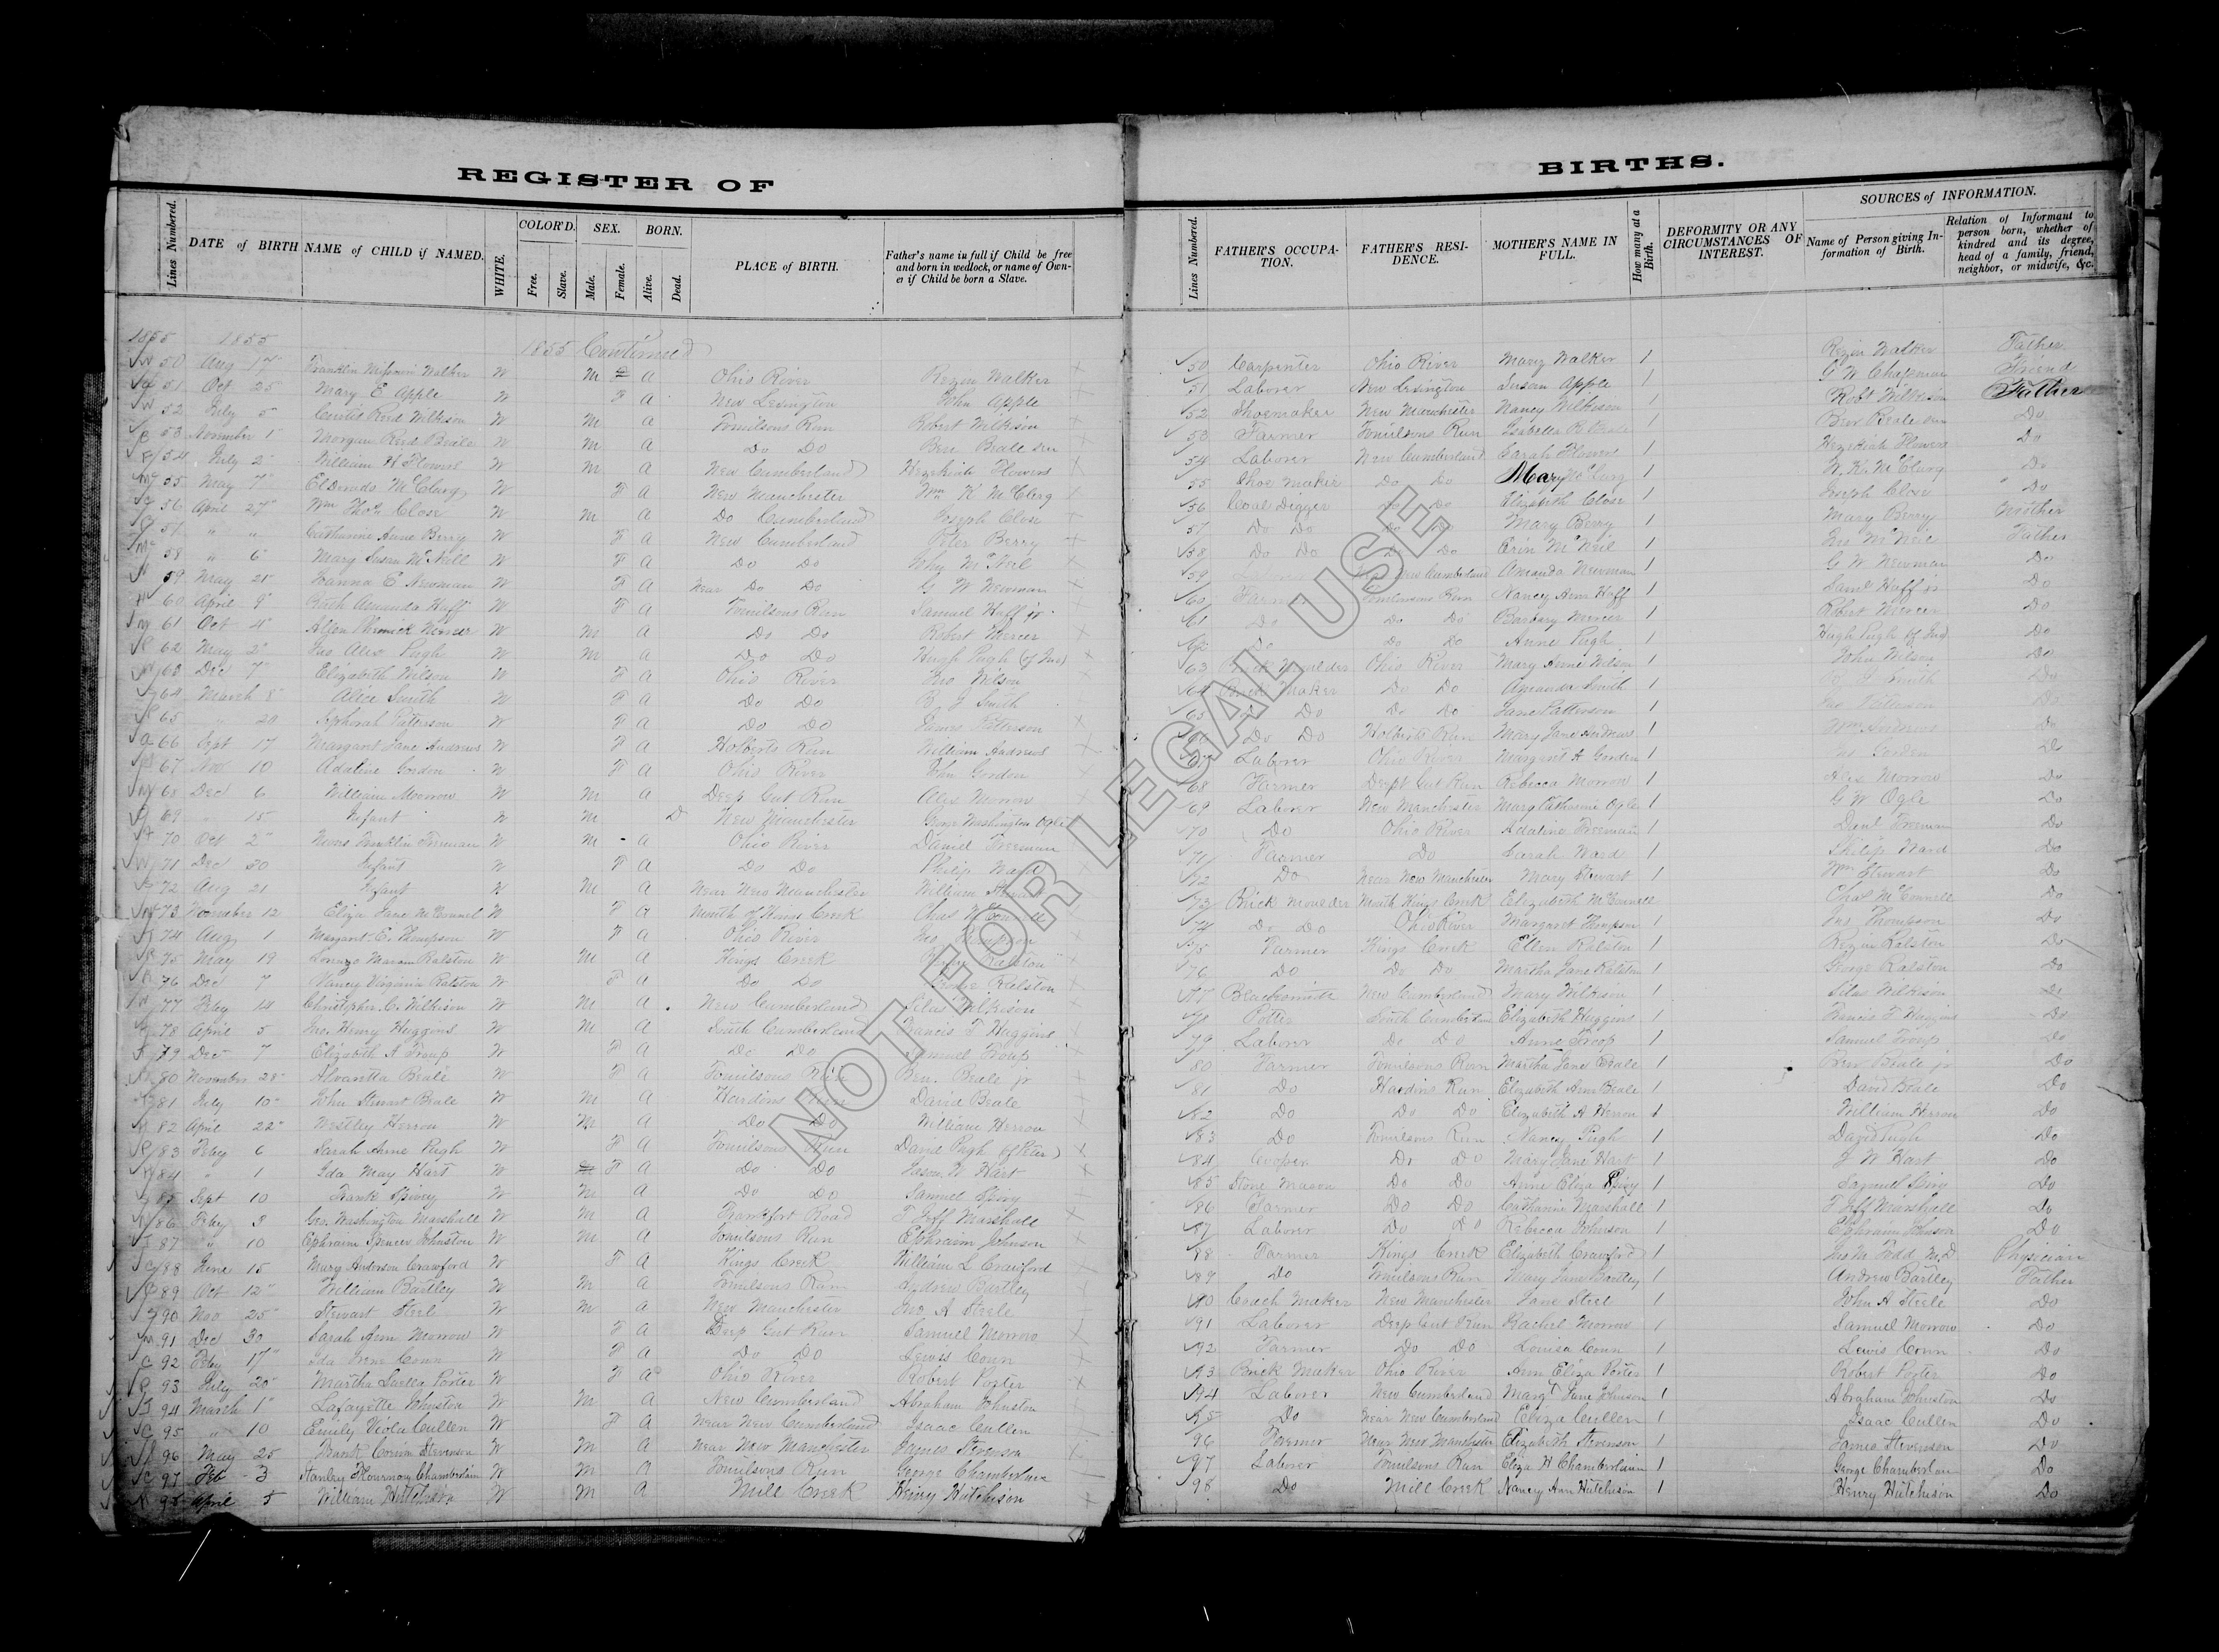 REGISTER OF BIRTHS.
Lines Numbered. DATE of BIRTH NAME of CHILD if NAMED. WHITE. COLOR'D. Free. Slave. SEX. Male. Female. BORN. Alive. Dead. PLACE of BIRTH. Father's name in full if Child be free and born in wedlock, or name of Owner if Child be born a Slave. Lines Numbered. FATHER'S OCCUPATION. FATHER'S RESIDENCE. MOTHER'S NAME IN FULL. How many at a Birth. DEFORMITY OR ANY CIRCUMSTANCES OF INTEREST. SOURCES of INFORMATION. Name of Person giving Information of Birth. Relation of Informant to person born, whether of kindred and its degree, head of a family, friend, neighbor, or midwife, &c.
1855 1855 1855 Continued
50 Aug Franklin Walker W M A Ohio River Rezin Walker 50 Carpenter Ohio River Mary Walker 1 Rezin Walker Father
51 Oct 25 Mary E Apple W F A New Lexington John Apple 51 Laborer New Lexington Susan Apple 1 G W Chapman Friend
52 July 5 Reed Wilkison W M A Tomilsons Run Robert Wilkison 52 Shoemaker New Manchester Nancy Wilkison 1 Robt Wilkison Father
53 November 1 Morgan Reed Beale W M A Do Do Ben Beale sen 53 Farmer Tomilsons Run Isabella R Beale 1 Benr Beale sen Do
54 July 2 William H Flowers W M A New Cumberland Hezekiah Flowers 54 Laborer New Cumberland Sarah Flowers 1 Hezekiah Flowers Do
55 May 7 Eldorado McClurg W F A New Manchester Wm K McClurg 55 Shoe maker Do Do Mary McClurg 1 W. K. McClurg Do
56 April 27 Wm Thos Close W M A Do Cumberland Joseph Close 56 Coal Digger Do Do Elizabeth Close 1 Joseph Close Do
57 " " Catharine Anne Berry W F A New Cumberland Peter Berry 57 Do Do Do Do Mary Berry 1 Mary Berry Mother
58 " 6 Mary Susan McNeill W F A Do Do John McNeil 58 Do Do Do Do Erin McNeil 1 Jno McNeil Father
59 May 21 Joanna E Newman W F A Near Do Do G W Newman 59 Laborer New Cumberland Amanda Newman 1 G. W. Newman Do
60 April 9 Ruth Amanda Haff W F A Tomilsons Run Samuel Haff jr 60 Farmer Tomlinsons Run Nancy Ann Haff 1 Saml Haff jr Do
61 Oct 4 Mercer W M A Do Do Robert Mercer 61 Do Do Do Barbary Mercer 1 Robert Mercer Do
62 May 2 Jno Alex Pugh W M A Do Do Hugh Pugh (of Jno) 62 Do Do Do Anne Pugh 1 Hugh Pugh (of Jno) Do
63 Dec 7 Elizabeth Wilson W F A Ohio River Jno Wilson 63 Brick Moulder Ohio River Mary Anne Wilson 1 John Wilson Do
64 March 8 Alice Smith W F A Do Do J Smith 64 Brick Maker Do Do Amanda Smith 1 Smith Do
65 " 20 Patterson W F A Do Do James Patterson 65 Do Do Do Jane Patterson 1 Jas Patterson Do
66 Sept 17 Margaret Jane Andrews W F A Holberts Run William Andrews 66 Do Do Holberts Run Mary Jane Andrews 1 Wm Andrews Do
67 Nov 10 Adaline Gordon W F A Ohio River John Gordon 67 Laborer Ohio River Margaret A Gorden 1 Jno Gorden Do
68 Dec 6 William Morrow W M A Deep Gut Run Alex Morrow 68 Farmer Deept Gut Run Rebecca Morrow 1 Alex Morrow Do
69 " 15 Infant W M D New Manchester George Washington Ogle 69 Laborer New Manchester Mary Catharine Ogle 1 G W Ogle Do
70 Oct 2 Franklin Freeman W M A Ohio River Daniel Freeman 70 Do Ohio River Adaline Freeman 1 Danl Freeman Do
71 Dec 30 Infant W F A Do Do Philip Ward 71 Farmer Do Sarah Ward 1 Philip Ward Do
72 Aug 21 Infant W M A Near New Manchester William Stewart 72 Do Near New Manchester Mary Stewart 1 Wm Stewart Do
73 November 12 Eliza Jane McConnel W F A Mouth of Kings Creek Chas McConnell 73 Brick Moulder Mouth Kings Creek Elizabeth McConnell Chas McConnell Do
74 Aug 1 Margaret E. Thompson W F A Ohio River Jno Thompson 74 Do Do Ohio River Margaret Thompson 1 Jno Thompson Do
75 May 19 Lorenzo Ralston W M A Kings Creek Ralston 75 Farmer Kings Creek Ellen Ralston 1 Rezin Ralston Do
76 Dec 7 Nancy Virginia Ralston W F A Do Do Ralston 76 Do Do Do Martha Jane Ralston 1 George Ralston Do
77 Feby 14 Christopher C. Wilkison W M A New Cumberland Silas Wilkison 77 Blacksmith New Cumberland Mary Wilkison 1 Silas Wilkison Do
78 April 5 Jno. Henry Huggins W M A South Cumberland Francis T Huggins 78 Potter South Cumberland Elizabeth Huggins 1 Francis T Huggins Do
79 Dec 7 Elizabeth A Troup W F A Do Do Samuel Troup 79 Laborer Do Do Anne Troop 1 Samuel Troup Do
80 November 28 Alvaretta Beale W F A Tomilsons Run Ben. Beale jr 80 Farmer Tomilsons Run Martha Jane Beale 1 Benr Beale jr Do
81 July 10 John Stewart Beale W M A Hardins Run David Beale 81 Do Hardins Run Elizabeth Ann Beale 1 David Beale Do
82 April 22 Westley Herron W M A Do Do William Herron 82 Do Do Do Elizabeth A Herron 1 William Herron Do
83 Feby 6 Sarah Anne Pugh W F A Tomilsons Run David Pugh (of Peter) 83 Do Tomilsons Run Nancy Pugh 1 David Pugh Do
84 " 1 Ida May Hart W F A Do Do Jason W Hart 84 Cooper Do Do Mary Jane Hart 1 J W Hart Do
85 Sept 10 Frank Spivey W M A Do Do Samuel Spivy 85 Stone Mason Do Do Anne Eliza Spivy 1 Samuel Spivy Do
86 Feby 3 Geo. Washington Marshall W M A Frankfort Road T Jeff Marshall 86 Farmer Do Do Catharine Marshall 1 T Jeff Marshall Do
87 " 10 Ephraim Spencer Johnston W M A Tomilsons Run Ephraim Johnson 87 Laborer Do Do Rebecca Johnson 1 Ephraim Johnson Do
88 June 15 Mary Anderson Crawford W F A Kings Creek William L Crawford 88 Farmer Kings Creek Elizabeth Crawford 1 Jas M. Todd M.D Physician
89 Oct 12 William Bartley W M A Tomilsons Run Andrew Bartley 89 Do Tomilsons Run Mary Jane Bartley 1 Andrew Bartley Father
90 Nov 25 Stewart Steel W M A New Manchester Jno A Steele 90 Coach Maker New Manchester Jane Steel 1 John A Steele Do
91 Dec 30 Sarah Ann Morrow W F A Deep Gut Run Samuel Morrow 91 Laborer Deep Gut Run Rachel Morrow 1 Samuel Morrow Do
92 Feby 17 Ida Irene Conn W F A Do Do Lewis Conn 92 Farmer Do Do Louisa Conn 1 Lewis Conn Do
93 July 20 Martha Porter W F A Ohio River Robert Porter 93 Brick Maker Ohio River Ann Eliza Porter 1 Robert Porter Do
94 March 1 Lafayette Johnston W M A New Cumberland Abraham Johnston 94 Laborer New Cumberland Margt Jane Johnson 1 Abraham Johnston Do
95 " 10 Emily Viola Cullen W F A Near New Cumberland Isaac Cullen 95 Do Near New Cumberland Eliza Cullen 1 Isaac Cullen Do
96 May 25 Frank Corwin Stevenson W M A Near New Manchester James Stevenson 96 Farmer Near New Manchester Elizabeth Stevenson 1 James Stevenson Do
97 Feb 3 Stanley Flournoy Chamberlain W M A Tomilsons Run George Chamberlain 97 Laborer Tomilsons Run Eliza H Chamberlain 1 George Chamberlain Do
98 April 5 William Hutchison W M A Mill Creek Henry Hutchison 98 Do Mill Creek Nancy Ann Hutchison 1 Henry Hutchison Do
NOT FOR LEGAL USE